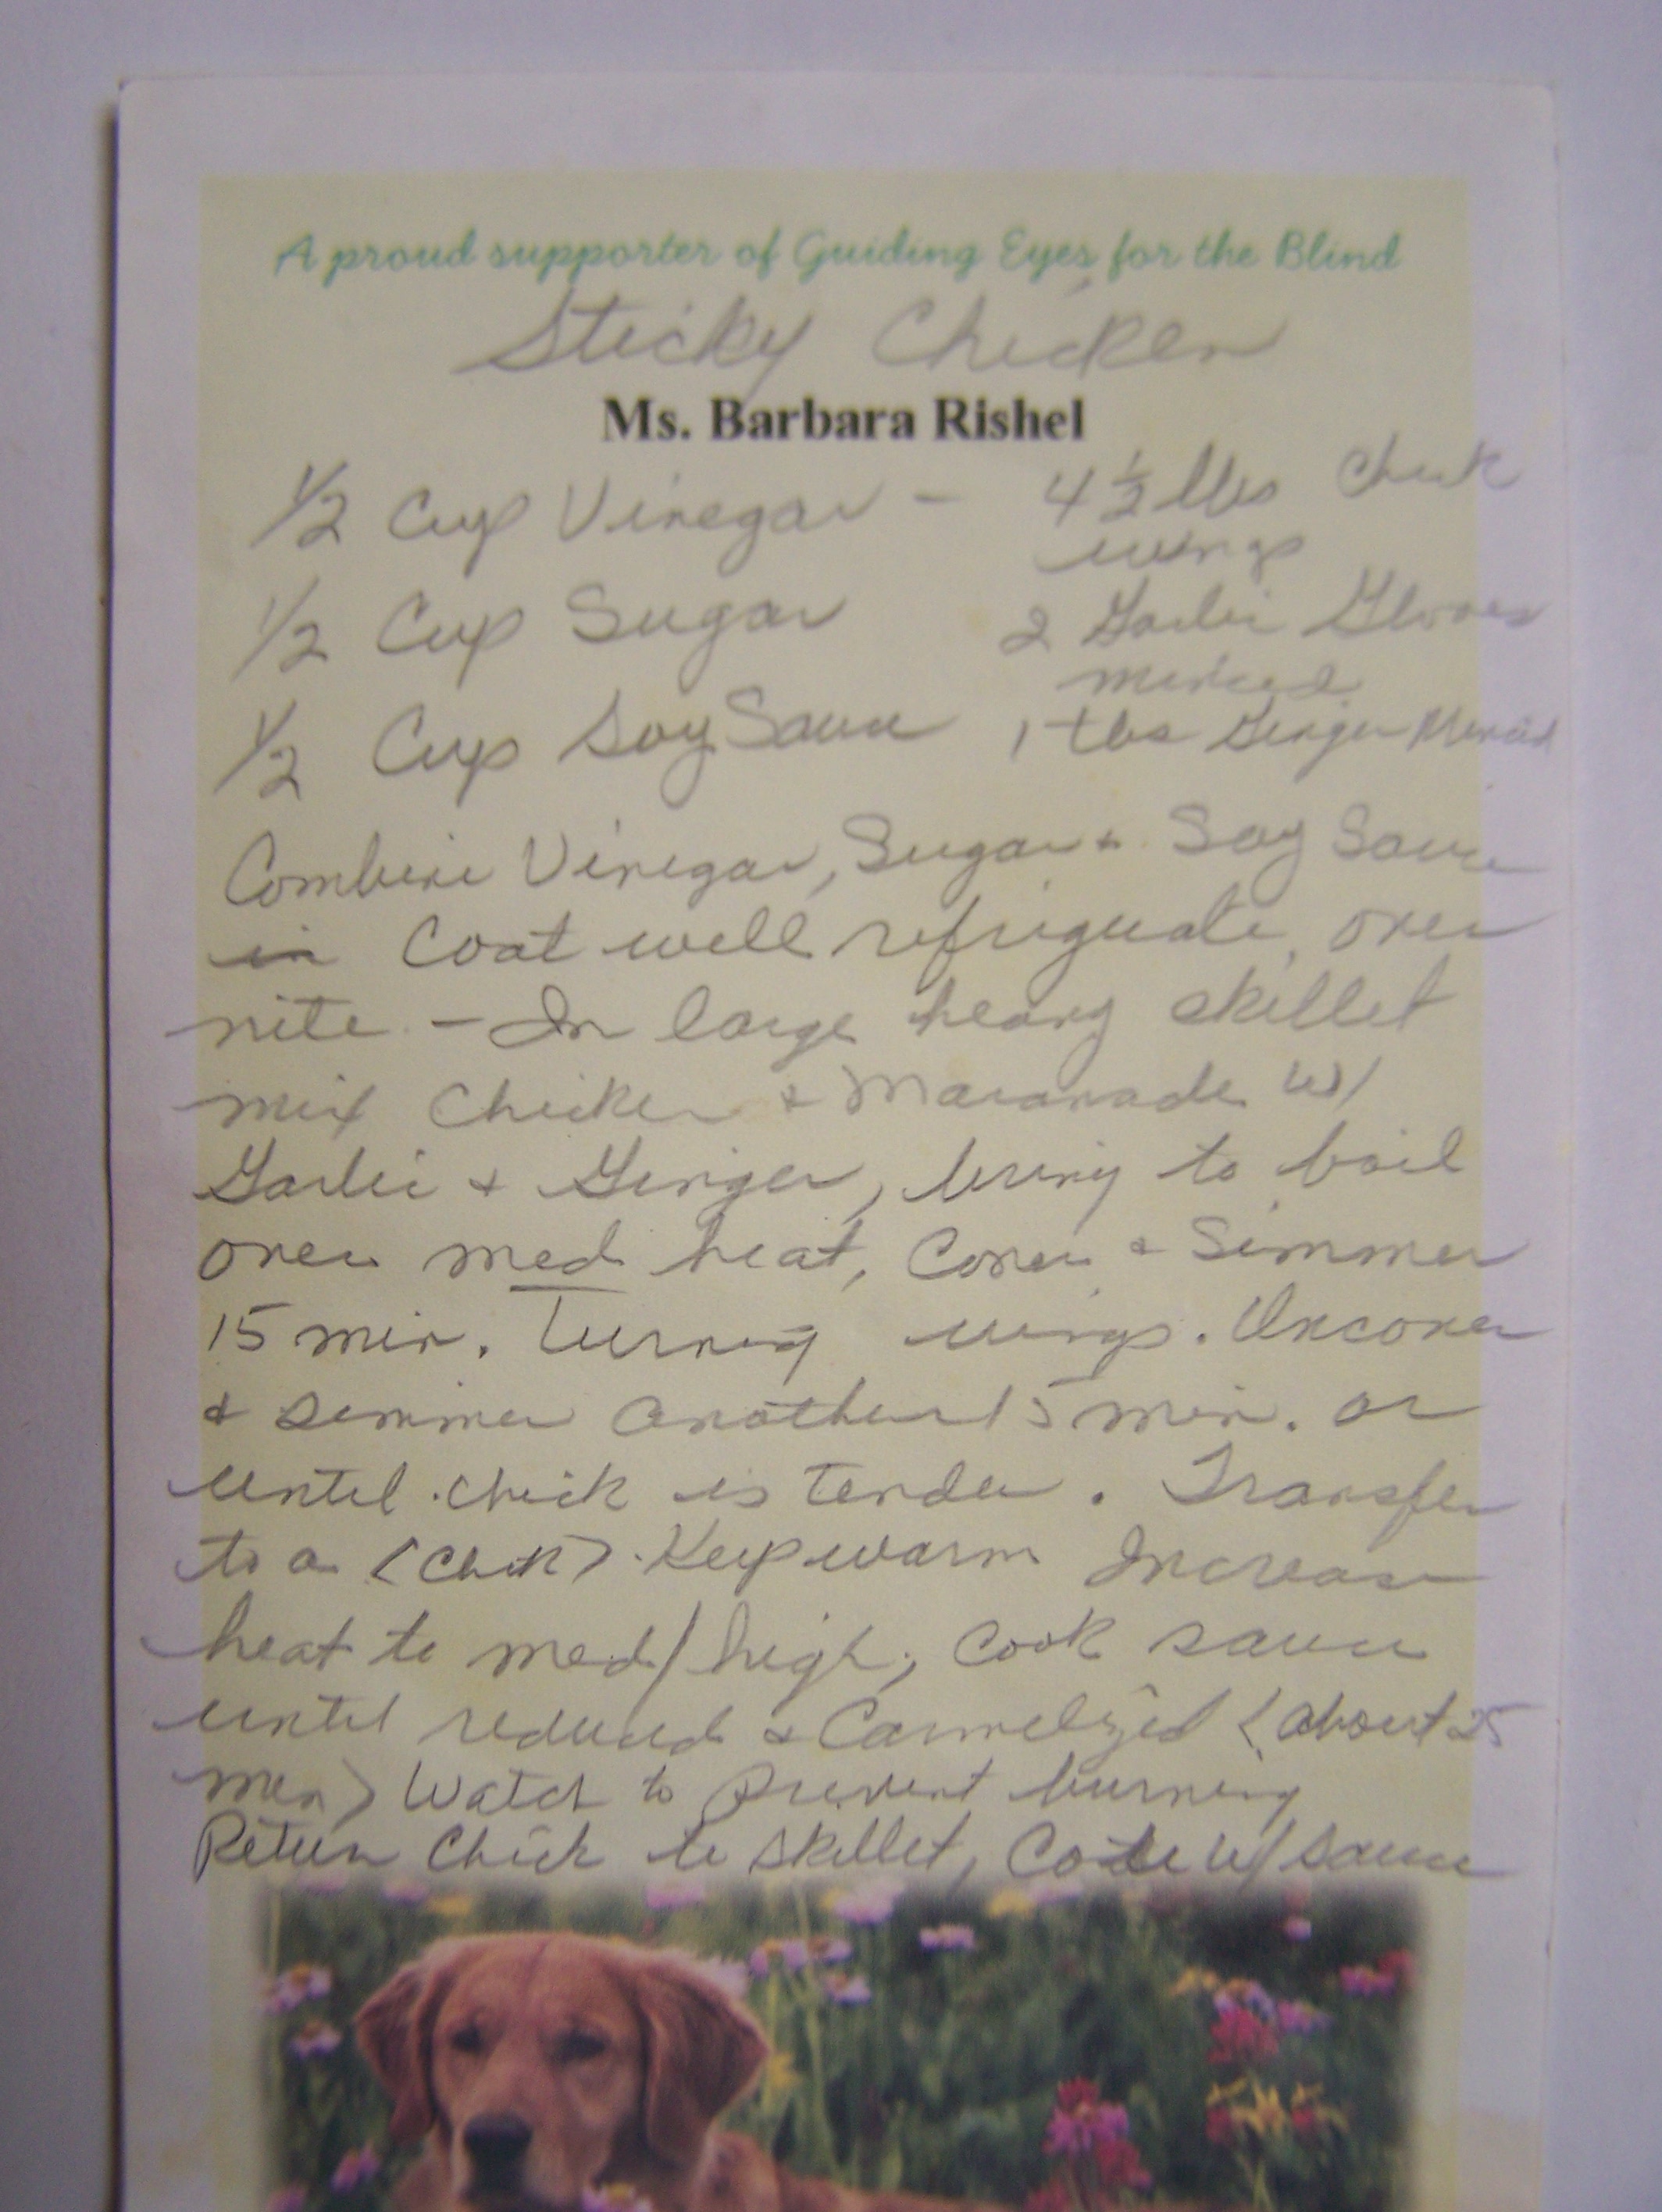 A proud supporter of Guiding Eyes for the Blind
Sticky Chicken
Ms. Barbara Rishel
1/2 Cup Vinegar - 4 1/2 lbs Chick
wings
1/2 Cup Sugar 2 Garlic Gloves
minced
1/2 Cup Soy Sauce 1 tbs Ginger Minced
Combine Vinegar, Sugar & Soy Sauce
in Coat well refriguate over
nite - In large heavy skillet
mix Chicken & Maranade w/
Garlic & Ginger, bring to boil
over med heat, Cover & Simmer
15 min. Turning wings. Uncover
& simmer another 15 min. or
until chick is tender. Transfer
to a (Chick). Keep warm Increase
heat to med/high, Cook sauce
until reduced & Carmelized (about 25
min) Watch to Prevent burning
Return Chick to skillet, Coate w/ sauce